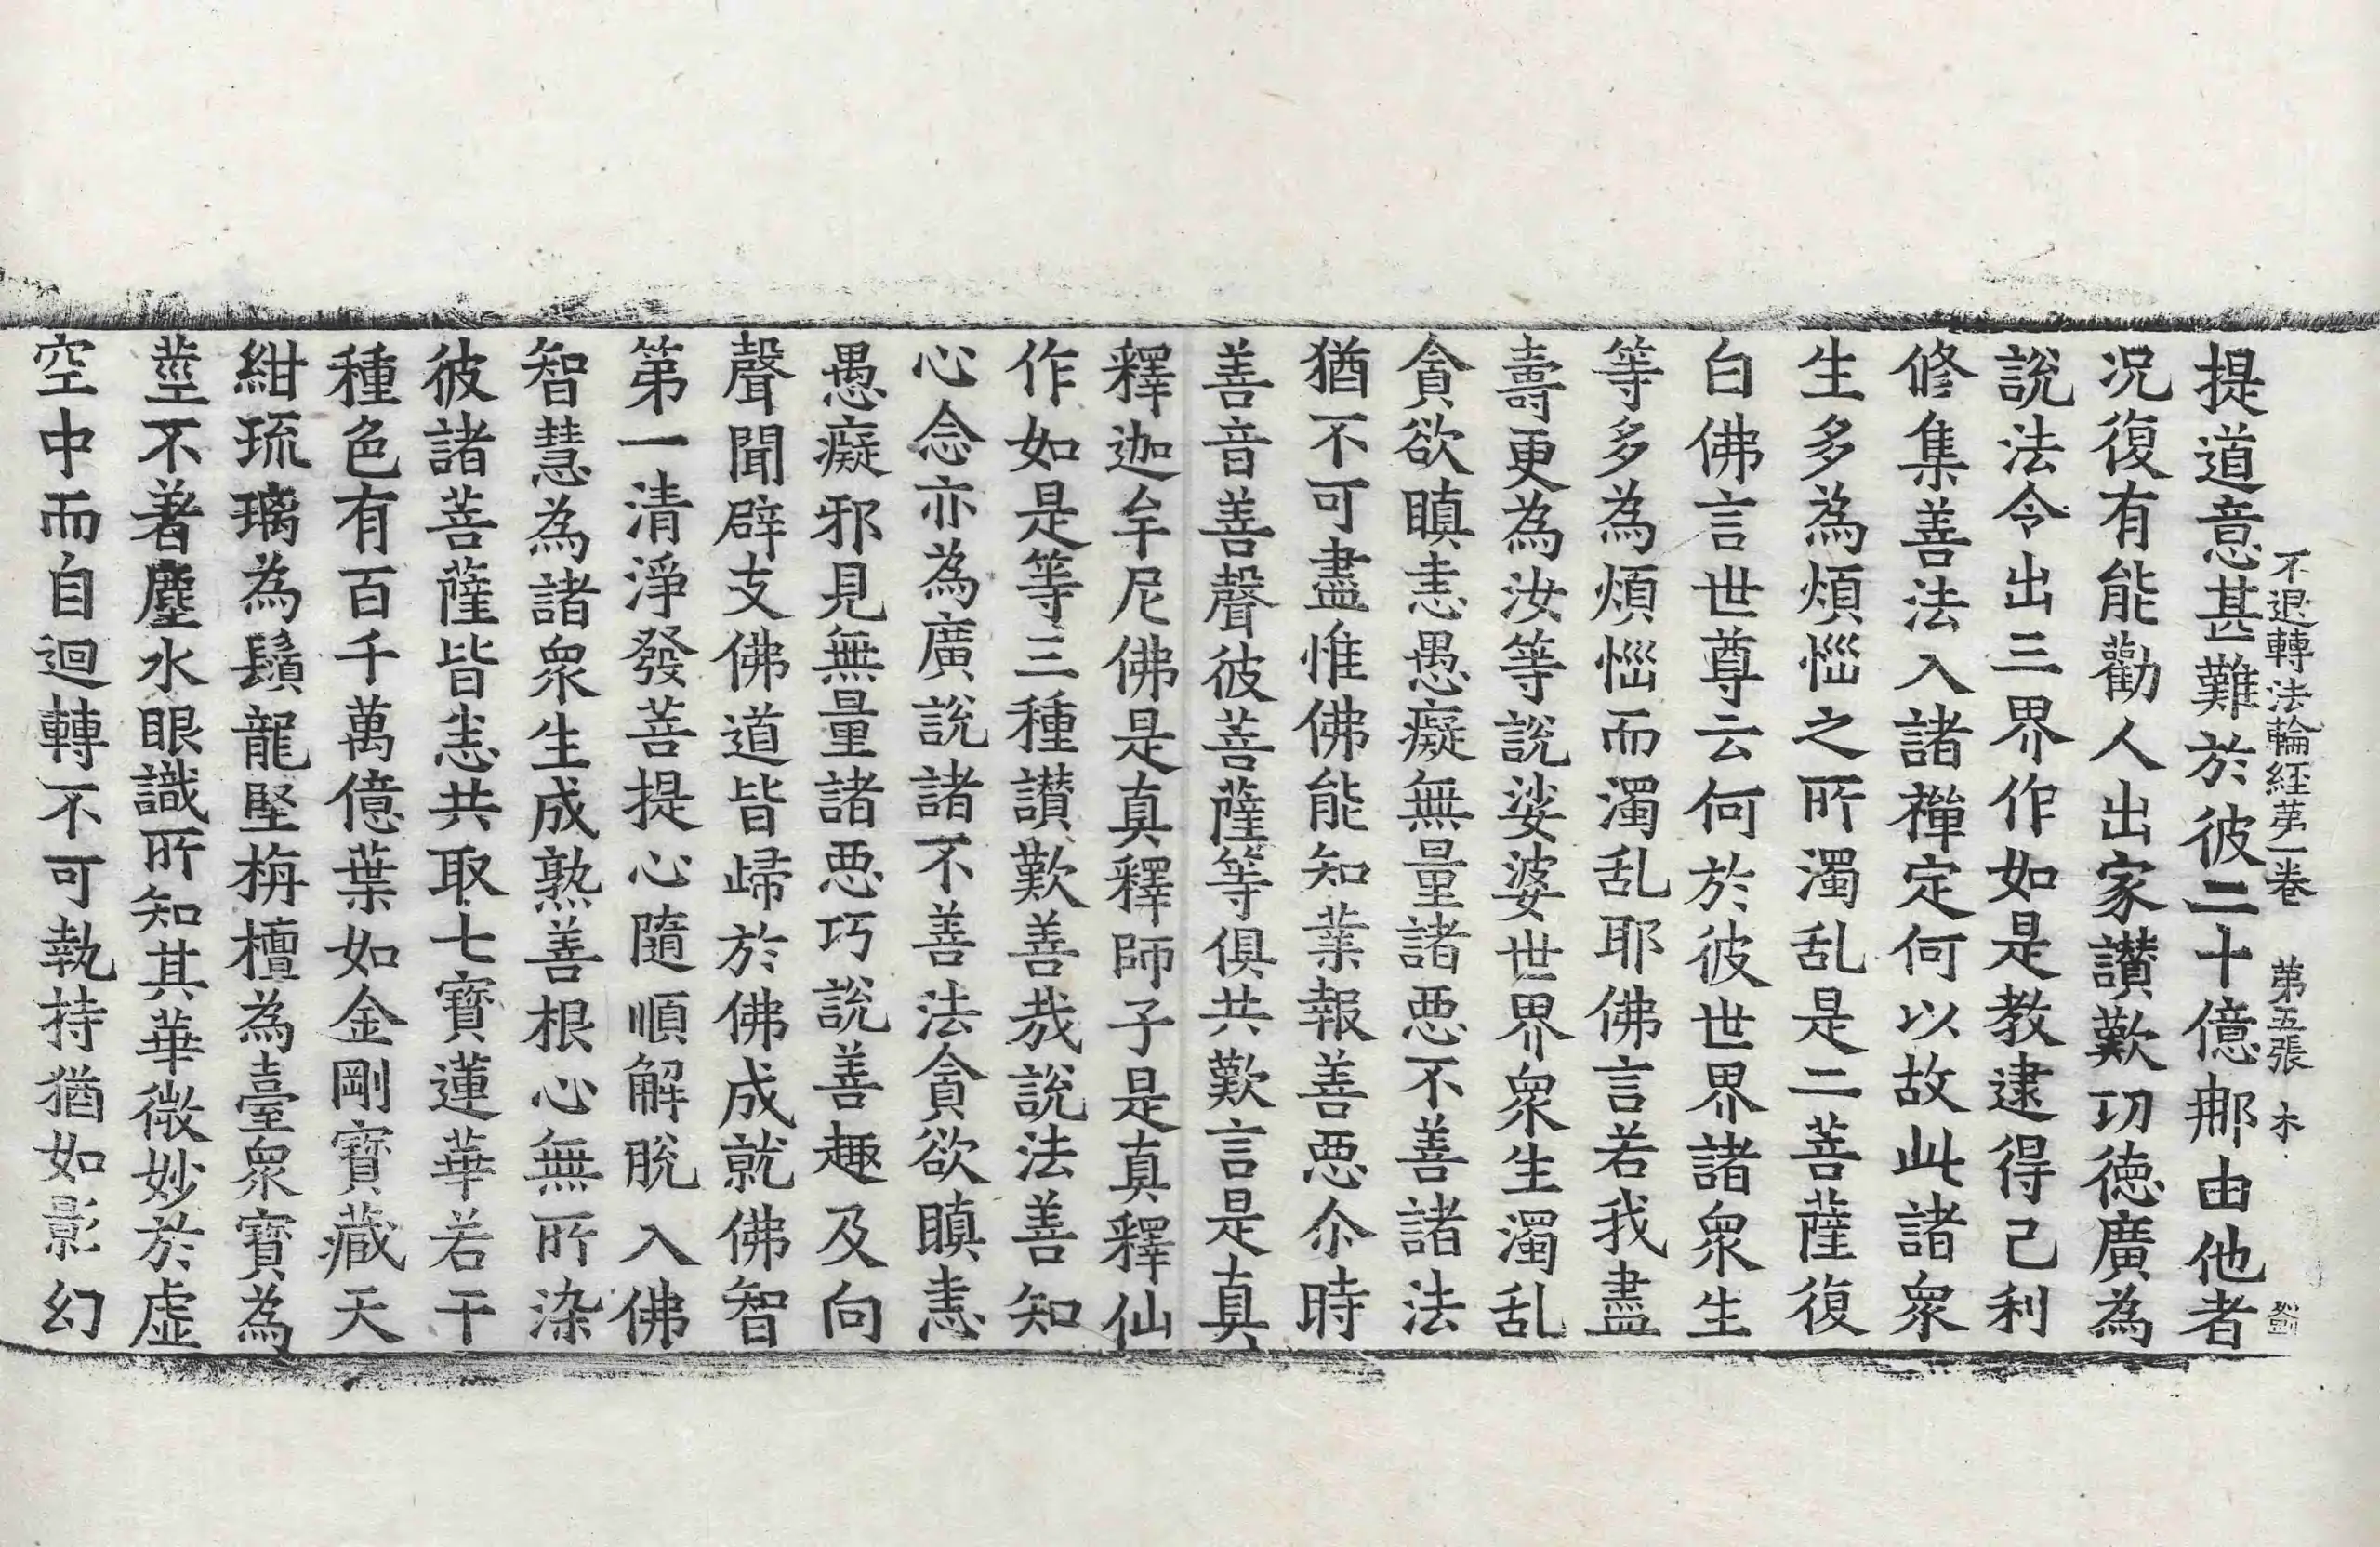 不退轉法輪経苐一卷 苐五張 木
提道意甚難於彼二十億那由他者
况復有能勸人出家讃歎㓛徳廣為
說法令出三界作如是教逮得己利
修集善法入諸禪定何以故此諸衆
生多為煩惱之所濁乱是二菩薩復
白佛言世尊云何於彼世界諸衆生
等多為煩惱而濁乱耶佛言若我盡
壽更為汝等說娑婆世界衆生濁乱
貪欲瞋恚愚癡無量諸惡不善諸法
猶不可盡惟佛能知業報善惡尒時
善音善聲彼菩薩等俱共歎言是真
釋迦牟尼佛是真釋師子是真釋仙
作如是等三種讃歎善㢤說法善知
心念亦為廣說諸不善法貪欲瞋恚
愚癡邪見無量諸惡巧說善趣及向
聲聞辟支佛道皆歸於佛成就佛智
第一清淨發菩提心隨順解脫入佛
智慧為諸衆生成熟善根心無所染
彼諸菩薩皆悉共取七寳蓮華若干
種色有百千萬億葉如金剛寳蔵天
紺琉璃為鬚龍堅栴檀為臺衆寳為
莖不著塵水眼識所知其華微妙於虛
空中而自迴轉不可執持猶如影幻